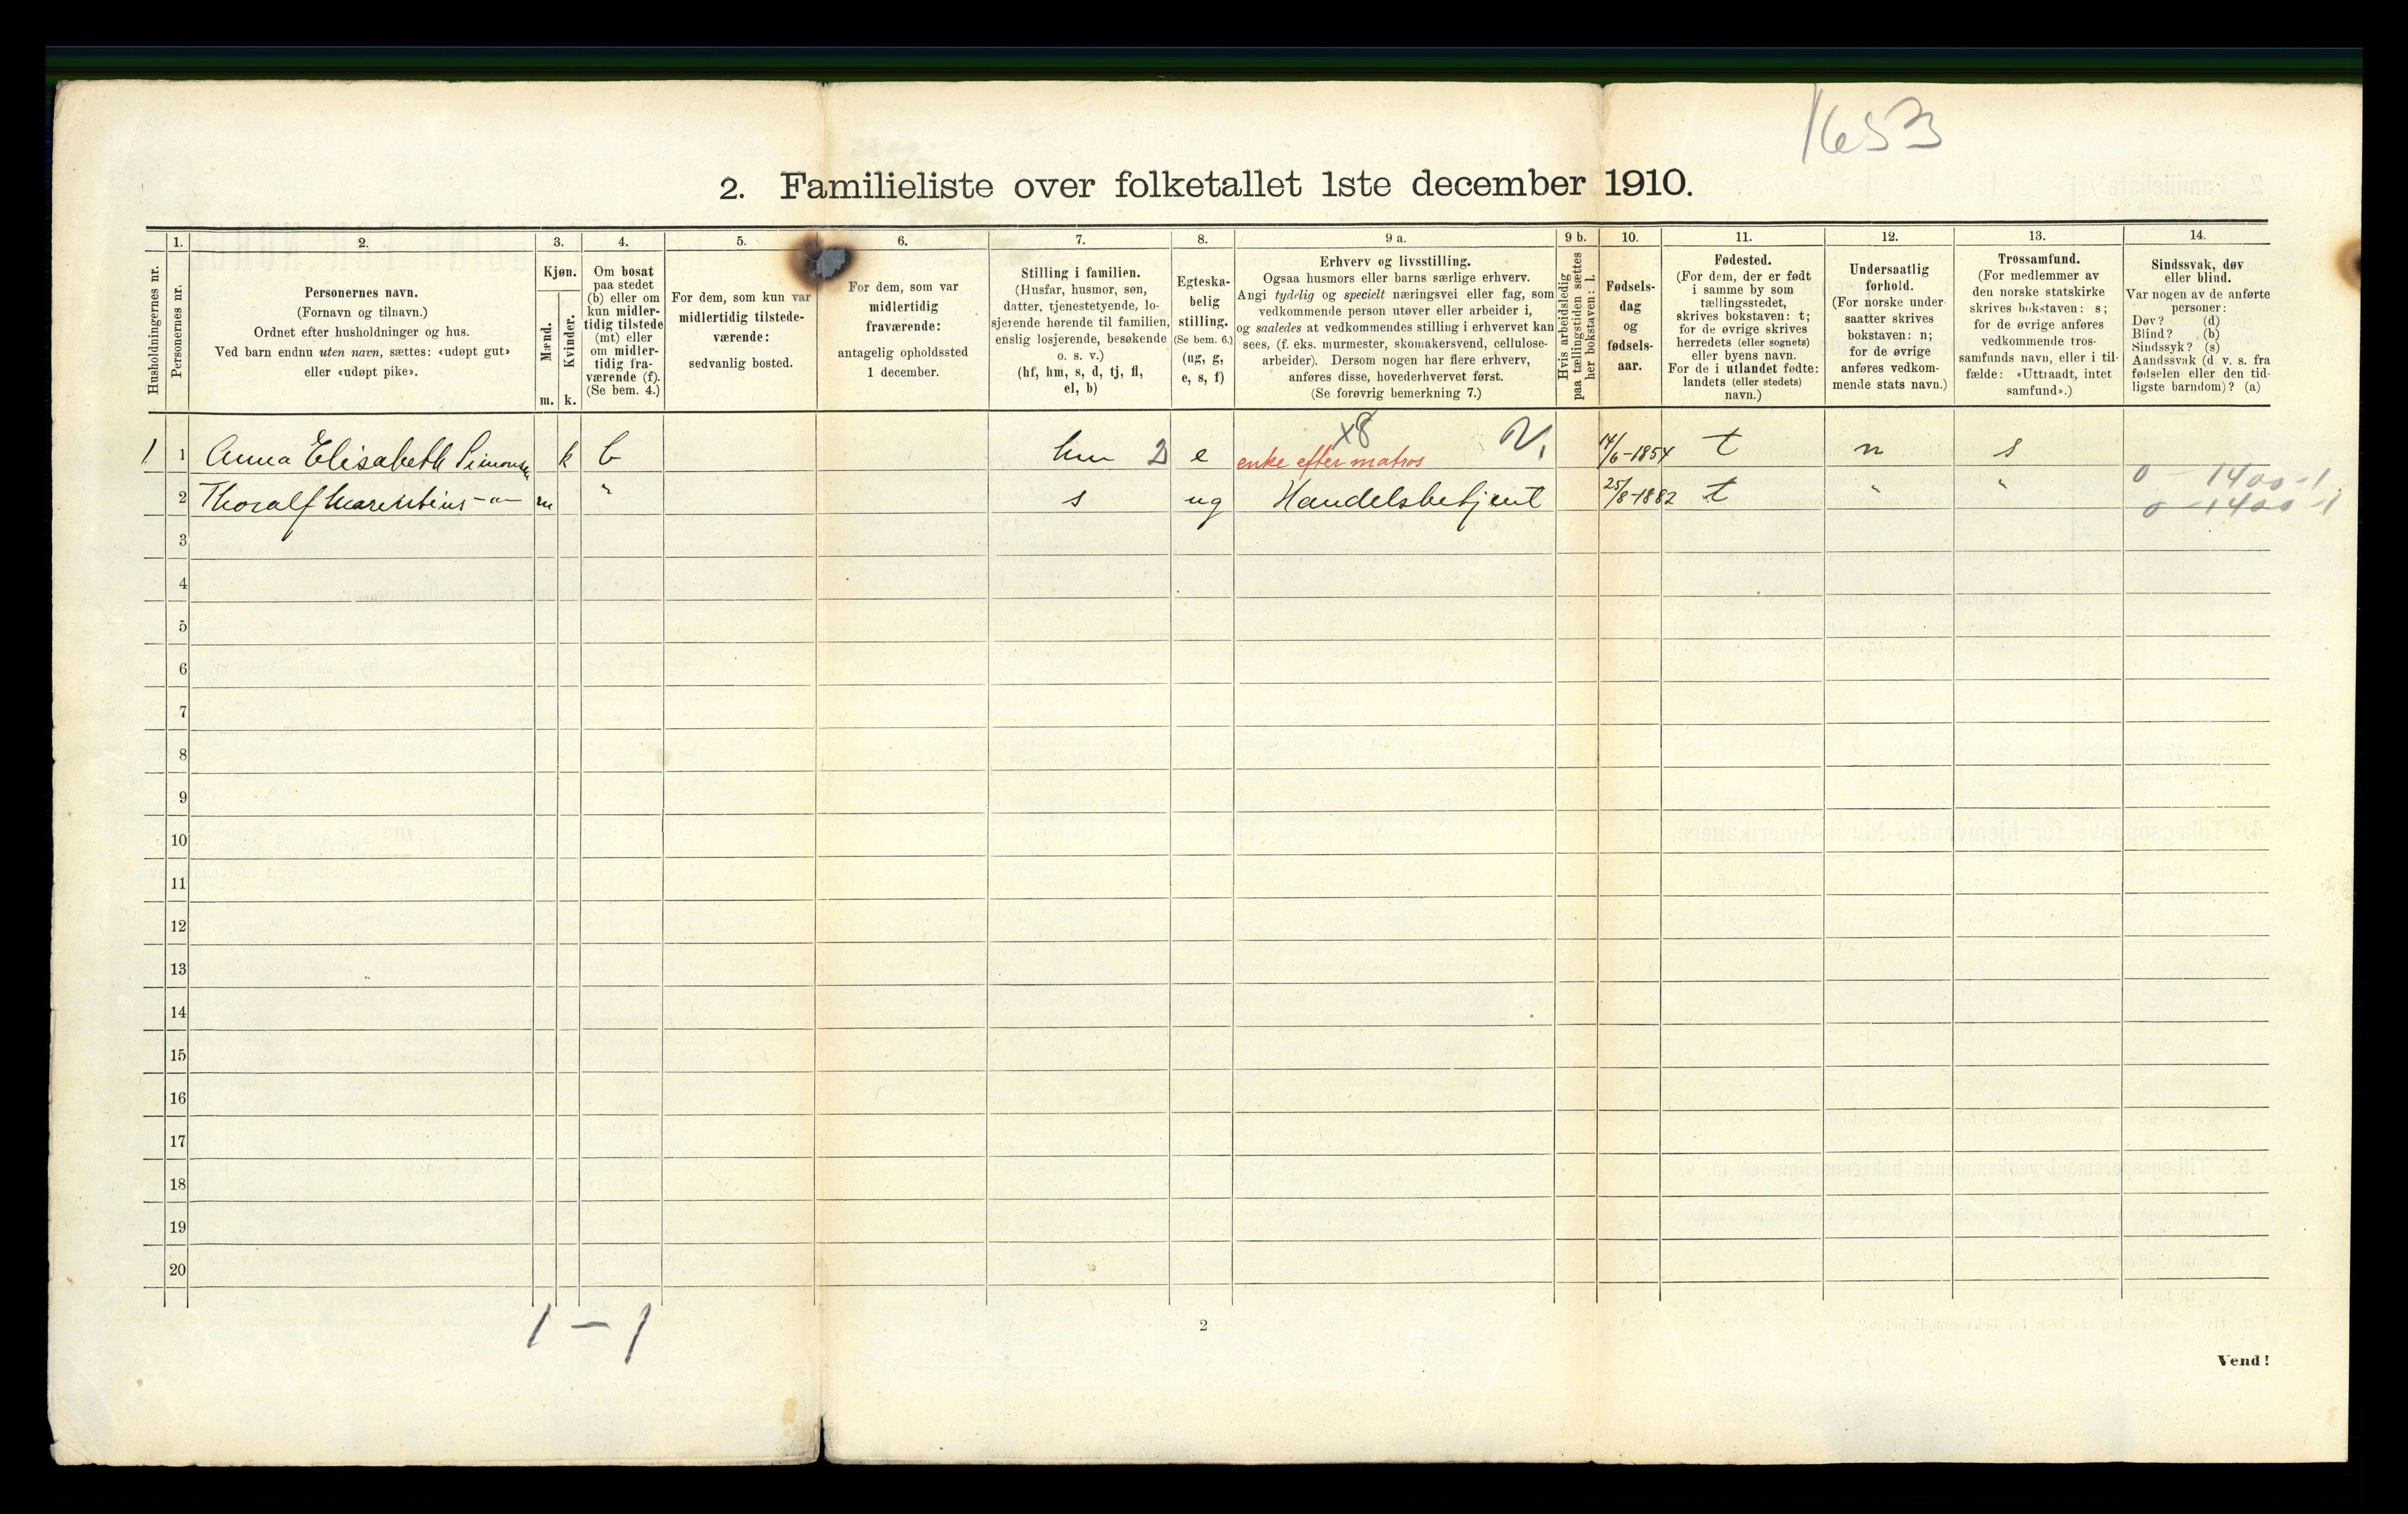 1653
2. Familieliste over folketallet 1ste december 1910.
Husholdningernes nr.
1.
Personernes nr.
2.
Personernes navn.
(Fornavn og tilnavn.)
Ordnet efter husholdninger og hus.
Ved barn endnu uten navn, sættes: «udøpt gut»
eller «udøpt pike».
3.
Kjøn.
Mænd.
Kvinder.
m. k.
4.
Om bosat
paa stedet
(b) eller om
kun midler-
tidig tilstede
(mt) eller
om midler-
tidig fra-
værende (f).
(Se bem. 4.)
5.
For dem, som kun var
midlertidig tilstede-
værende:
sedvanlig bosted.
6.
For dem, som var
midlertidig
fraværende:
antagelig opholdssted
1 december.
7.
Stilling i familien.
(Husfar, husmor, søn,
datter, tjenestetyende, lo-
sjerende hørende til familien,
enslig losjerende, besøkende
o. s. v.)
(hf, hm, s, d, tj, fl,
el, b)
8.
Egteska-
belig
stilling.
(Se bem. 6.)
(ug, g,
e, s, f)
9 a.
Erhverv og livsstilling.
Ogsaa husmors eller barns særlige erhverv.
Angi tydelig og specielt næringsvei eller fag, som
vedkommende person utøver eller arbeider i,
og saaledes at vedkommendes stilling i erhvervet kan
sees, (f. eks. murmester, skomakersvend, cellulose-
arbeider). Dersom nogen har flere erhverv,
anføres disse, hovederhvervet først.
(Se forøvrig bemerkning 7.)
9 b.
Hvis arbeidsledig
paa tællingstiden sættes
her bokstaven: l.
10.
Fødsels-
dag
og
fødsels-
aar.
11.
Fødested.
(For dem, der er født
i samme by som
tællingsstedet,
skrives bokstaven: t;
for de øvrige skrives
herredets (eller sognets)
eller byens navn.
For de i utlandet fødte:
landets (eller stedets)
navn.)
12.
Undersaatlig
forhold.
(For norske under-
saatter skrives
bokstaven: n;
for de øvrige
anføres vedkom-
mende stats navn.)
13.
Trossamfund.
(For medlemmer av
den norske statskirke
skrives bokstaven: s;
for de øvrige anføres
vedkommende tros-
samfunds navn, eller i til-
fælde: «Uttraadt, intet
samfund».)
14.
Sindssvak, døv
eller blind.
Var nogen av de anførte
personer:
Døv? (d)
Blind? (b)
Sindssyk? (s)
Aandssvak (d. v. s. fra
fødselen eller den tid-
ligste barndom)? (a)
x8
1 1 Anna Elisabeth Simonsen k b hm 2 e enke efter matros 14/6-1854 t n s
0 1400-1
2 Thoralf Marentius -"- m " s ug Handelsbetjent 25/8-1882 t " "
0 1400-1
3
4
5
6
7
8
9
10
11
12
13
14
15
16
17
18
19
20
1 – 1
2
Vend!